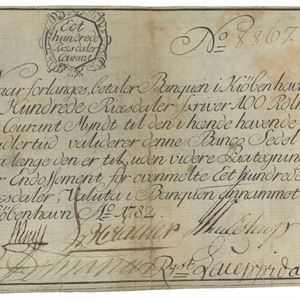 Eet
hundrede
Rixsdaler
Courant
No 8867.
aar forlanges, betaler Banquen i Kiöbenhavn
Hundrede Rixsdaler skriver 100 Rdlr
Courant Mynt til den i hænde havende
idlertiid validerer denne Banco Sedel
aa lenge den er til, uden videre Paategning
r Endossement for ovenmelte Eet hundrede
ixsdaler, Valuta i Banquen annammet
Kiöbenhavn Ao 1782.